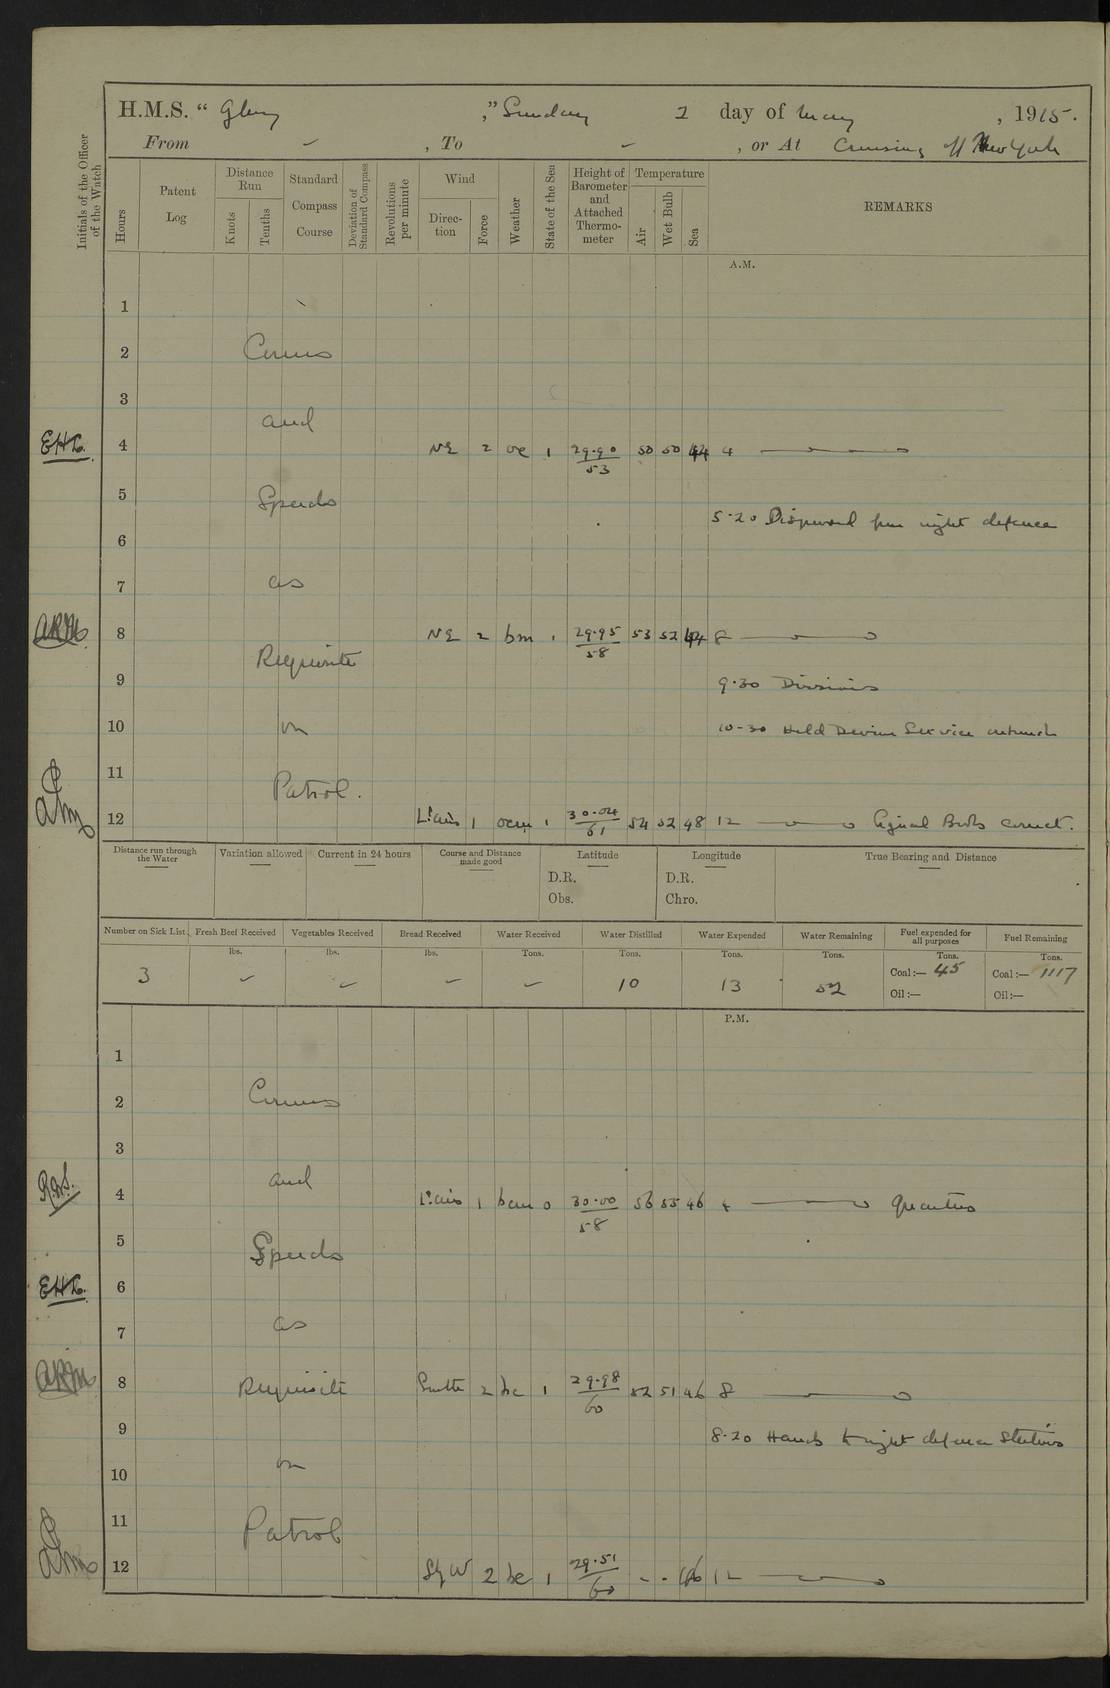 H.M.S. “ Glory ,” Sunday 2 day of May , 1915.
From – , To – , or At Cruising off New York
Initials of the Officer of the Watch
Hours
Patent Log
Distance Run
Knots
Tenths
Standard Compass Course
Deviation of Standard Compass
Revolutions per minute
Wind
Direc-tion
Force
Weather
State of the Sea
Height of Barometer and Attached Thermo-meter
Temperature
Air
Wet Bulb
Sea
REMARKS
A.M.
1
2 Courses
3
and
EHL. 4 NE 2 oc 1 29.90/53 50 50 44 4
5 Speeds
5.20 Dispersed from night defence
6
7 as
8 NE 2 bm 1 29.95/58 53 52 44 8
Requisite
9 9.30 Divisions
10 on 10-30 Held Devine Service
11
Patrol.
12 Lt airs 1 ocm 1 30.04/61 54 52 48 12 Correct.
Distance run through the Water
Variation allowed
Current in 24 hours
Course and Distance made good
Latitude
D.R.
Obs.
Longitude
D.R.
Chro.
True Bearing and Distance
Number on Sick List
Fresh Beef Received
Vegetables Received
Bread Received
Water Received
Water Distilled
Water Expended
Water Remaining
Fuel expended for all purposes
Fuel Remaining
lbs. lbs. lbs. Tons. Tons. Tons. Tons. Tons. Tons.
3 – – – – 10 13 52 Coal:— 45 Coal:— 1117
Oil:— Oil:—
P.M.
1
2 Courses
3
and
4 Lt airs 1 bcm 0 30.00/58 56 55 46 4 Quarters
5 Speeds
EHL. 6
7 as
8 Requisite South 2 bc 1 29.98/60 52 51 46 8
9 8.20 Hands to night defence Stations
10 on
11 Patrol
12 SbyW 2 bc 1 29.51/60 - - 46 12